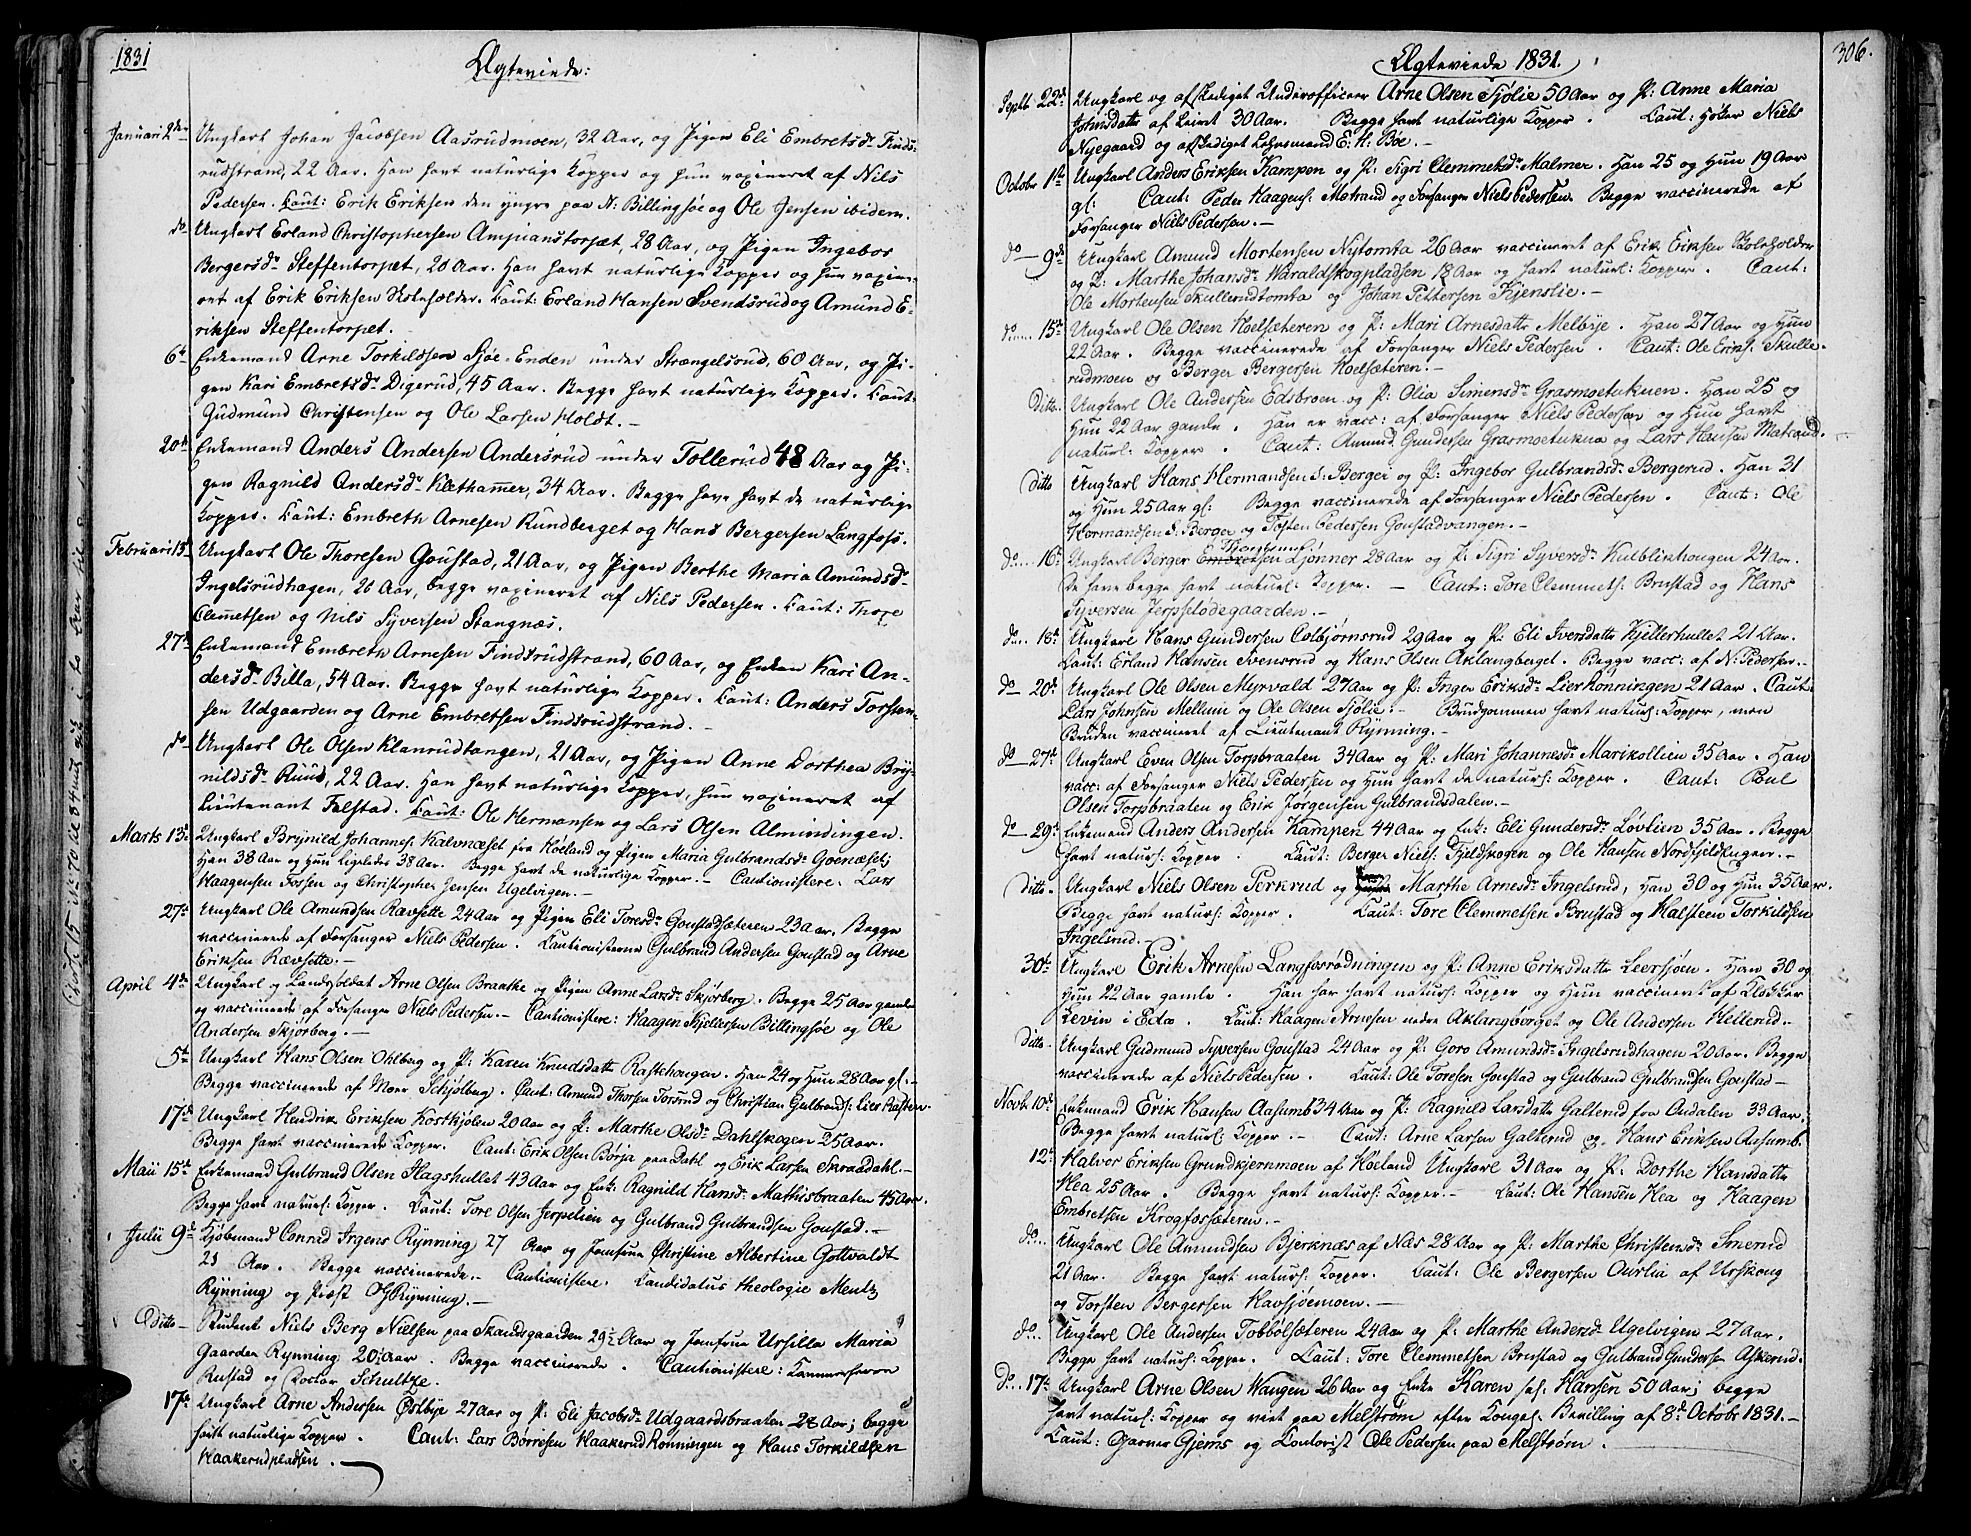 1831
Ægteviede:
Januari 2den Ungkarl Johan Jacobsen Aasrudmoen, 32 Aar, og Pigen Eli Embretsdr Finds-
rudstrand, 22 Aar. Han havt naturlige Kopper og hun vaxineret af Nils
Pedersen. Caut: Erik Eriksen den yngre paa N: Billingsøe og Ole Jensen ibidem.
do Ungkarl Erland Christophersen Ampianstorpet, 28 Aar, og Pigen Ingebor
Bergersdr Steffentorpet, 20 Aar. Han havt naturlige Kopper og hun vaxine-
ret af Erik Eriksen Skoleholder. Caut: Erland Hansen Svendsrud og Amund E-
riksen Steffentorpet.
6te Enkemand Arne Torkildsen Sjøe-Enden under Strængelsrud, 60 Aar, og Pi-
gen Kari Embretsdr Digerud, 45 Aar. Begge havt naturlige Kopper. Caut:
Gudmund Christensen og Ole Larsen Holdt.–
20de Enkemand Anders Andersen Andersrud under Tollerud 48 Aar og Pi-
gen Ragnild Andersdr Klethammer, 34 Aar. Begge have havt de naturlige
Kopper. Caut: Embreth Arnesen Rundberget og Hans Bergersen Langfoss.
Februari 13de Ungkarl Ole Thoresen Goustad, 21 Aar, og Pigen Berthe Maria Amundsdr
Ingelsrudhagen, 26 Aar, begge vaxineret af Nils Pedersen. Caut: Thore
Clemetsen og Nils Syversen Stangnæs.
27de Enkemand Embreth Arnesen Findsrudstrand, 60 Aar, og Enken Kari An-
dersdr Billa, 54 Aar. Begge havt naturlige Kopper. Caut: Anders Torsten-
sen Udgaarden og Arne Embretsen Findsrudstrand.
do Ungkarl Ole Olsen Klanrudtangen, 21 Aar, og Pigen Anne Dorthea Bry-
nildsdr Ruud, 22 Aar. Han havt naturlige Kopper, hun vaxineret af
Lieutenant Felstad. Caut: Ole Hermansen og Lars Olsen Almindingen.
Marts 13de Ungkarl Brynild Johannes: Kalvnæset fra Høland og Pigen Maria Gulbrandsdr Goenæset;
Han 38 Aar og Hun ligeledes 38 Aar. Begge havt de naturlige Kopper.– Cautionistere: Lars
Haagensen Fossen og Christopher Jensen Ugelvigen.–
27de Ungkarl Ole Amundsen Rævsette 24 Aar og Pigen Eli Toresdr Goustadsæteren 23 Aar. Begge
vaccinerede af Forsanger Niels Pedersen. Cautionisterne Gulbrand Andersen Goustad og Arne
Eriksen Rævsette.–
April 4de Ungkarl og Landsoldat Arne Olsen Braathe og Pigen Anne Larsdr Skjørberg. Begge 25 Aar gamle
og vaccinerede af Forsanger Niels Pedersen.– Cautionistere: Haagen Kjeldsen Billingsøe og Ole
Andersen Skjørberg.–
5te Ungkarl Hans Olsen Ohlberg og P: Karen Knudsdatter Raskhougen. Han 24 og Hun 28 Aar gl:–
Begge vaccinerede af Moer Schjølberg. Caut: Amund Thorsen Torsrud og Christian Gulbrands: Lier Hasten.
17de Ungkarl Hendrik Eriksen Kortkjølen 20 Aar og P: Marthe Olsdr Dahlskogen 25 Aar.
Begge havt vaccinerede Kopper. Caut: Erik Olsen Børja paa Dahl og Erik Larsen Skraadahl.–
Maii 15de Enkemand Gulbrand Olsen Flagshullet 43 Aar og Enk: Ragnild Hansdr Mathisbraaten 45 Aar.
Begge havt naturl: Kopper. Caut: Tore Olsen Jerpelien og Gulbrand Gulbrandsen Goustad.–
Julii 9de Kjøbmand Conrad Irgens Rynning 27 Aar og Jomfrue Christine Albertine Gottwaldt
23 Aar. Begge vaccinerede.– Cautionistere: Candidatus theologie Mentz
Rynning og Præst O: Rynning.–
Ditto– Student Niels Berg Nielsen paa Skandsgaarden 29½ Aar og Jomfrue Ursilla Maria
Gaarder Rynning 20½ Aar. Begge vaccinerede. Cautionistere: Kammerherre
Rustad og Doctor Schultze.
17de Ungkarl Arne Andersen Østbye 27 Aar og P: Eli Jacobsdr Udgaardsbraaten 28 Aar; begge
havt naturlige Kopper. Caut: Lars Børresen Haakerud Rønningen og Hans Torkildsen
Haakerudpladsen.
Ægteviede 1831.
306.
Septb 22de Ungkarl og afskediget Underofficeer Arne Olsen Sjølie 50 Aar og P: Anne Maria
Johnsdatter af Leiret 30 Aar. Begge havt naturlige Kopper. Caut: Høker Niels
Nyegaard og afskediget Lehnsmand E: K: Bøe.–
Octobr 1ste Ungkarl Anders Eriksen Kampen og P: Sigri Clemmetsdr Malmer. Han 25 og Hun 19 Aar
gl: Caut: Peder Haagens: Motrand og Forsanger Niels Pedersen. Begge vaccinerede af
Forsanger Niels Pedersen.–
do– 9de Ungkarl Amund Mortensen Nytomta 26 Aar vaccineret af Erik Eriksen Skoleholder
og P: Marthe Johansdr Waraldskogpladsen 18 Aar og havt naturl: Kopper. Caut:
Ole Mortensen Skullerudtomta og Johan Pettersen Kjenslie.–
do... 15de Ungkarl Ole Olsen Hoelsæteren og P: Mari Arnesdatter Melbye. Han 27 Aar og Hun
22 Aar. Begge vaccinerede af Forsanger Niels Pedersen. Caut: Ole Eriks: Skulle-
rudmoen og Berger Bergersen Hoelsæteren.–
Ditto. Ungkarl Ole Andersen Edsbroen og P: Olia Simensdr Grasmoetuknen. Han 25 og
Hun 22 Aar gamle. Han er vacc: af Forsanger Niels Pedersen og Hun havt
naturl: Kopper. Caut: Amund Gundersen Grasmoetukna og Lars Hansen Matrand.
Ditto Ungkarl Hans Hermandsen S: Berger og P: Ingebor Gulbrandsdr Bergerud. Han 31
og Hun 25 Aar gl: Begge vaccinerede af Forsanger Niels Pedersen. Caut: Ole
Hermandsen S: Berger og Tosten Pedersen Goustadvangen.–
do... 16de Ungkarl Berger Embretsen Ljønner 28 Aar og P: Sigri Syversdr Kulblikhougen 24 Aar.
De have begge havt naturl: Kopper.– Caut: Tore Clemmets: Brustad og Hans
Syversen Jerpselødegaarden.–
do... 18de Ungkarl Hans Gundersen Colbjørnsrud 29 Aar og P: Eli Iversdatter Kjellerhullet 21 Aar.
Caut: Erland Hansen Svensrud og Hans Olsen Aklangberget. Begge vacc: af N: Pedersen.–
do– 20de Ungkarl Ole Olsen Myrvald 27 Aar og P: Inger Eriksdr Lierhønningen 21 Aar. Caut:
Lars Johnsen Mellum og Ole Olsen Sjølie.– Brudgommen havt naturl: Kopper, men
Bruden vaccineret af Lieutenant Rynning.–
do– 27de Ungkarl Even Olsen Torpbraaten 34 Aar og P: Mari Johannesdr Marikollien 35 Aar. Han
vacc: af Forsanger Niels Pedersen og Hun havt de naturl: Kopper. Caut: Poul
Olsen Torpbraaten og Erik Jørgensen Gulbrandsdalen.–
do– 29de Enkemand Anders Andersen Kampen 44 Aar og Enk: Eli Gundersdr Løvlien 35 Aar. Begge
havt naturl: Kopper. Caut: Berger Niels: Fjeldskogen og Ole Hansen Nordfjeldengen.–
Ditto. Ungkarl Niels Olsen Perkrud og Marthe Arnesdr Ingelsrud, Han 30 og Hun 35 Aar.
Begge havt naturl: Kopper. Caut: Tore Clemmetsen Brustad og Halsteen Torkildsen
Ingelsrud.–
30te Ungkarl Erik Arnesen Langfosrødningen og P: Anne Eriksdatter Leersjøen. Han 30 og
Hun 22 Aar gamle. Han har havt naturl: Kopper og Hun vaccineret af Klokker
Levin i Eda. Caut: Haagen Arnesen nedre Aklangberget og Ole Andersen Hellerud.–
Ditto– Ungkarl Gudmund Syversen Goustad 24 Aar og P: Goro Amundsdr Ingelsrudhagen 20 Aar. Begge
vaccinerede af Niels Pedersen. Caut: Ole Toresen Goustad og Gulbrand Gulbrandsen Goustad–
Novb. 10de Enkemand Erik Hansen Aasumb 34 Aar og P: Ragnild Larsdatter Galterud fra Oudalen 33 Aar.
Begge havt naturl: Kopper.– Caut: Arne Larsen Galterud og Hans Eriksen Aasumb.
12te Halvor Eriksen Grundkjernmoen af Høland Ungkarl 31 Aar og P: Dorthe Hansdatter
Hea 25 Aar. Begge havt naturl: Kopper.– Caut: Ole Hansen Hea og Haagen
Embretsen Krogfossæteren.–
do... Ungkarl Ole Amundsen Bjerknæs af Næs 28 Aar og P: Marthe Christensdr Smerud
21 Aar. Begge havt naturl: Kopper. Caut: Ole Bergersen Ourlia af Urskoug
og Torsten Bergersen Havsjøemoen.–
do... Ungkarl Ole Andersen Tobbølsæteren 24 Aar og P: Marthe Andersdr Ugelvigen 27 Aar.
Begge havt naturl: Kopper. Caut: Tore Clemmetsen Brustad og Gulbrand Gundersen Askerud.
Do... 17de Ungkarl Arne Olsen Wangen 26 Aar og Enke Karen sal. Hansen 50 Aar; begge
havt naturl: Kopper og viet paa Melstrøm efter Kongel: Bevilling af 8de Octobr 1831.–
Caut: Garver Gjems og Contorist Ole Pedersen paa Melstrøm.